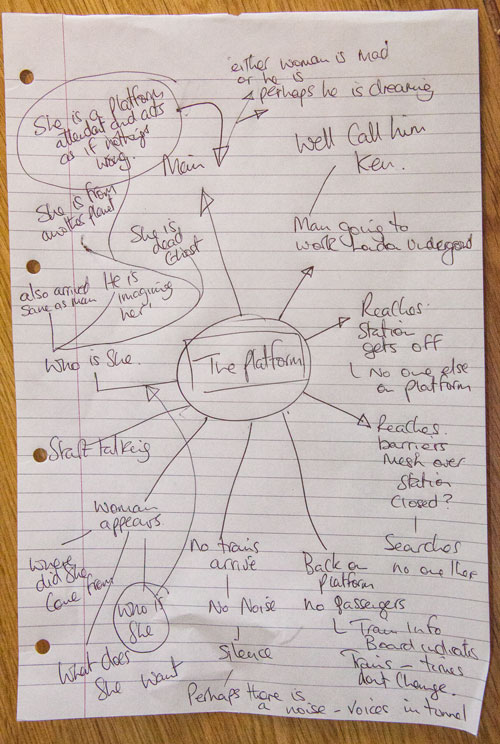 either woman is mad
or he is
perhaps he is dreaming
She is a platform
attendant and acts
as if nothing is
wrong.
Main
Well Call him
Ken.
She is from
another planet
She is
dead
Ghost
Man going to
work London Underground
also arrived
same as man
He is
imagining
her'
Who is She.
The Platform
Reaches
Station
gets off
No one else
on platform
Start talking
Reaches
barriers
Mesh over
Station
Closed?
Searches
no one
Woman
appears
Where
did she
come from
Who is
She
What does
She want
No trains
arrive
No Noise
Silence
Perhaps there is
a noise - voices in tunnel
Back on
platform
no passengers
Train Info
Board indicates
Trains - times
dont Change.